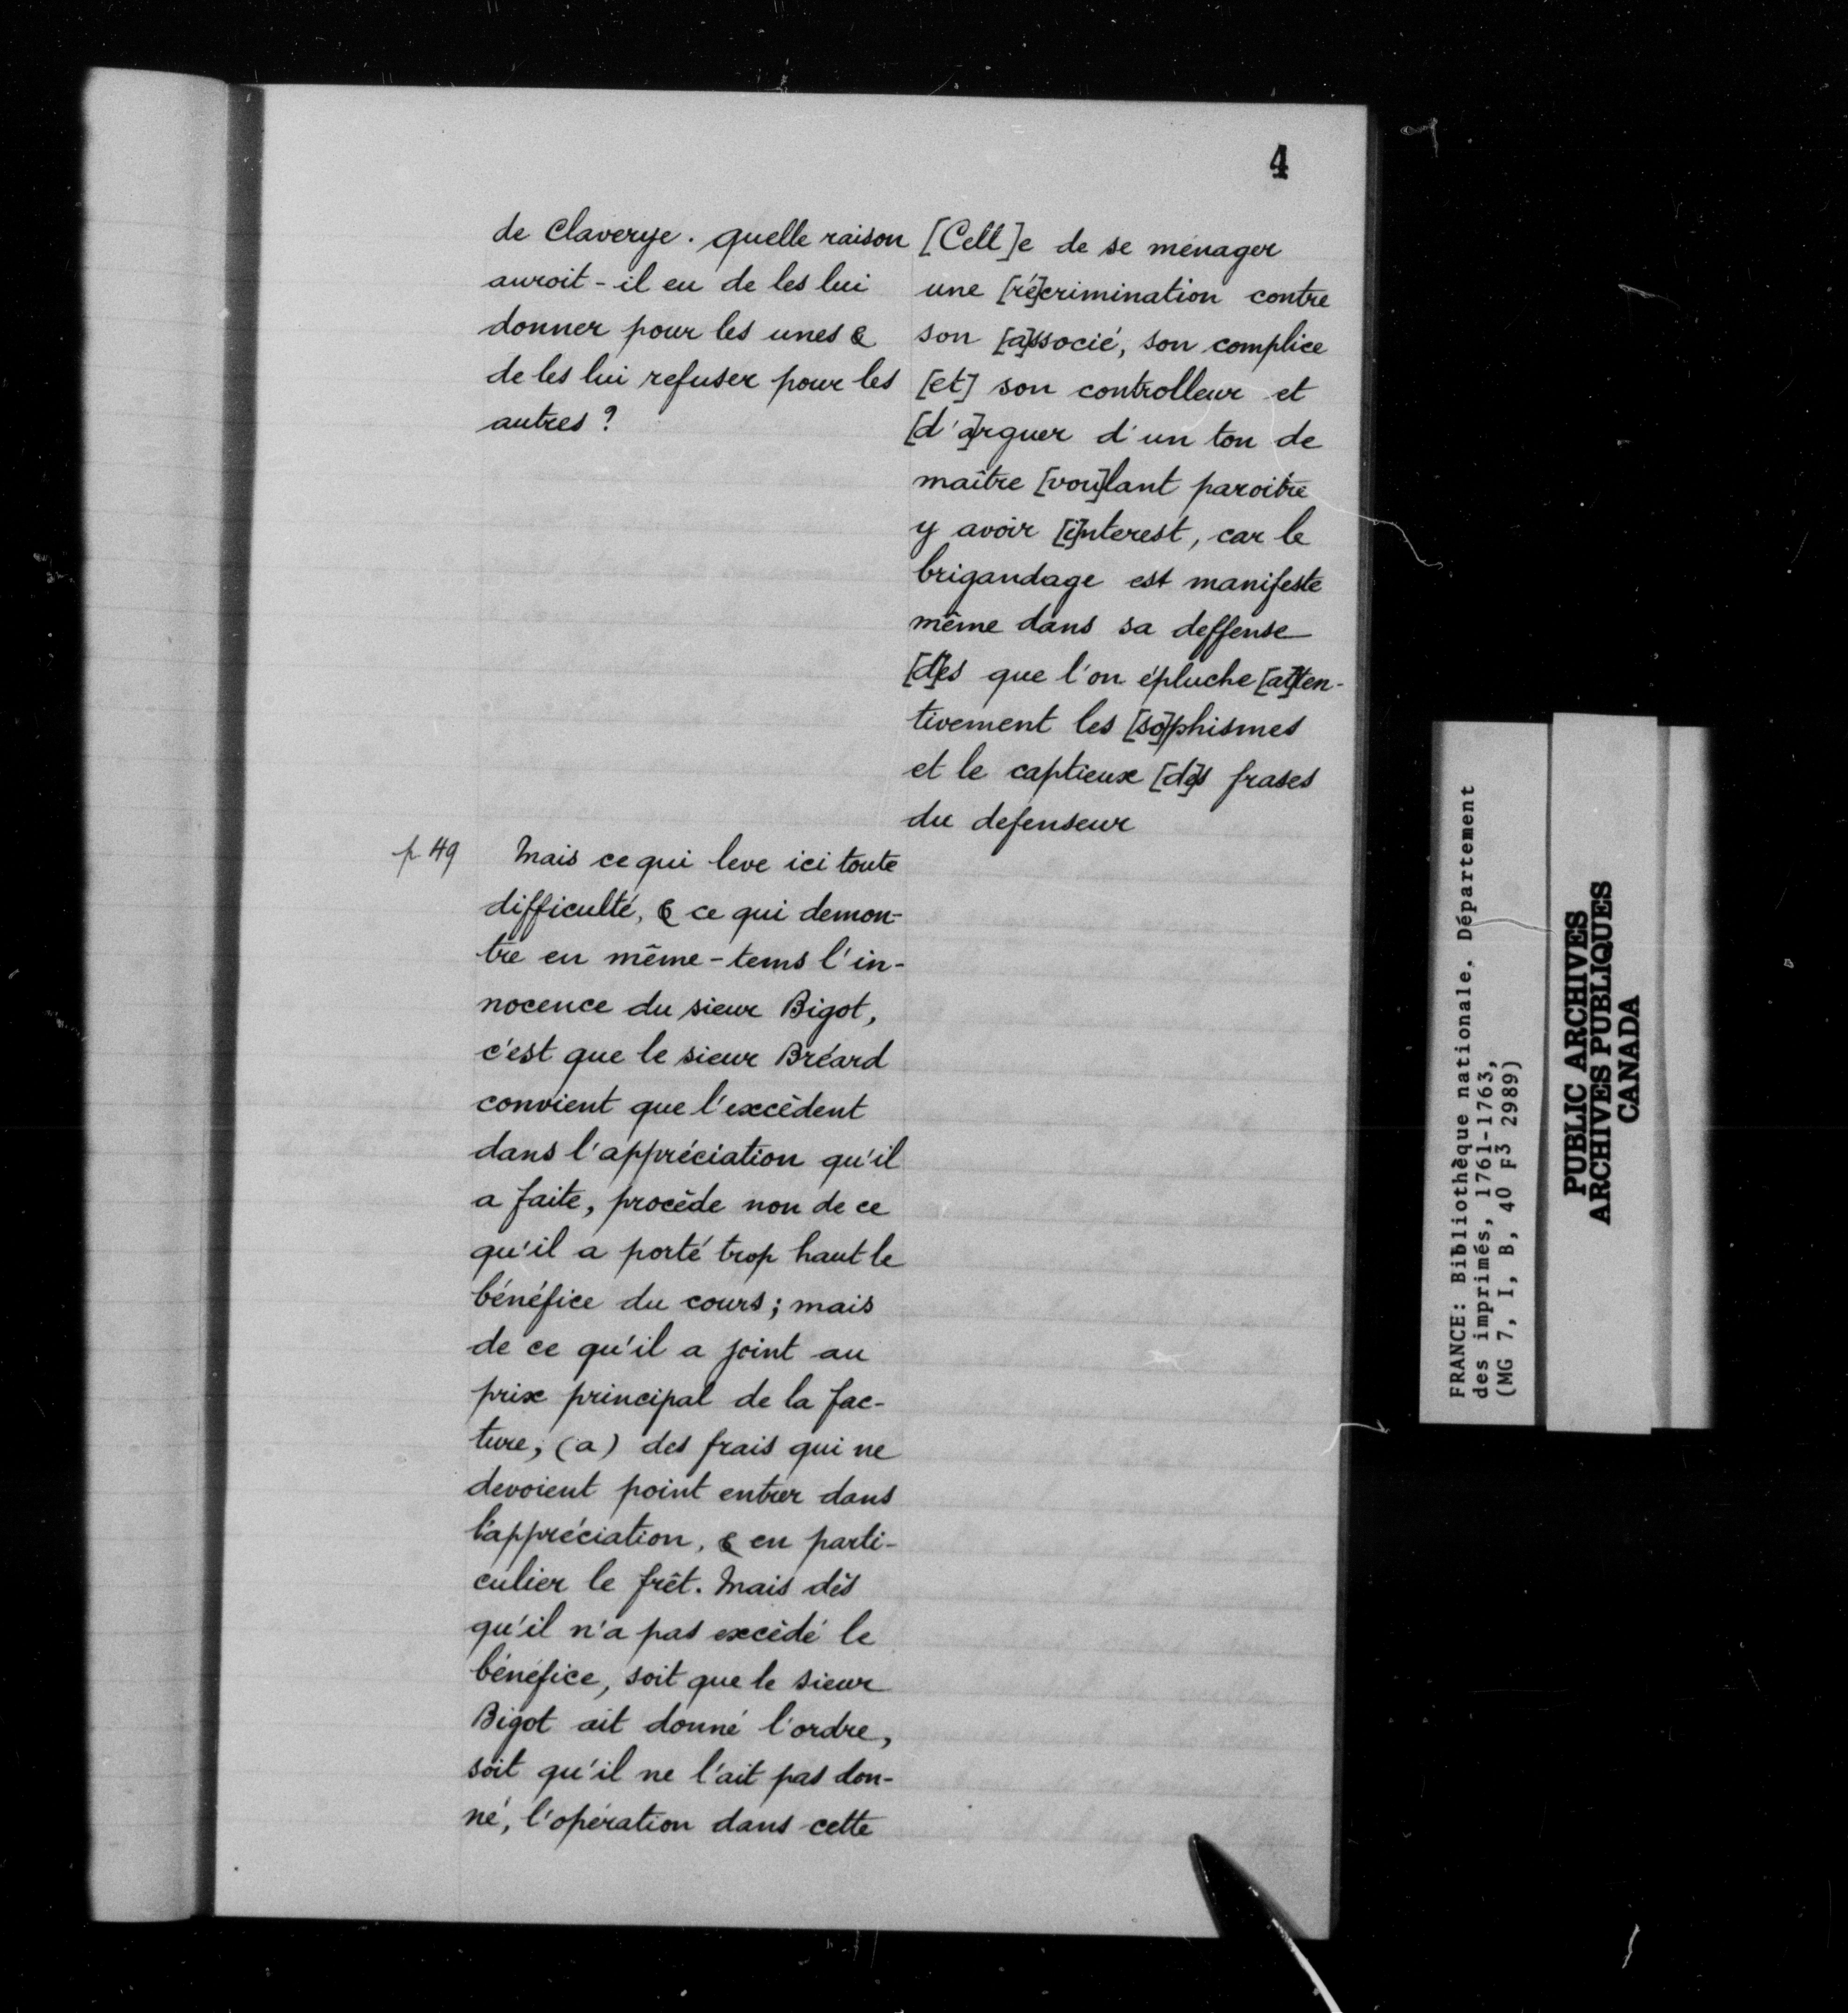 4
de Claverye. quelle raison
auroit-il eu de les lui
donner pour les unes &
de les lui refuser pour les
autres ?
[Cell]e de se ménager
une [ré]crimination contre
son [a]ssocié, son complice
[et] son controlleur et
[d'a]rguer d'un ton de
maître [vou]lant paroitre
y avoir [i]nterest, car le
brigandage est manifeste
même dans sa deffense
[d]es que l'on épluche [at]ten-
tivement les [so]phismes
et le captieux [de]s frases
du defenseur
p 49
Mais ce qui leve ici toute
difficulté, & ce qui demon-
tre en même-tems l'in-
nocence du sieur Bigot,
c'est que le sieur Bréard
convient que l'excèdent
dans l'appréciation qu'il
a faite, procède non de ce
qu'il a porté trop haut le
bénéfice du cours; mais
de ce qu'il a joint au
prix principal de la fac-
ture, (a) des frais qui ne
devoient point entrer dans
l'appréciation, & en parti-
culier le frêt. Mais dès
qu'il n'a pas excèdé le
bénéfice, soit que le sieur
Bigot ait donné l'ordre,
soit qu'il ne l'ait pas don-
né, l'opération dans cette
FRANCE: Bibliothèque nationale. Département
des imprimés, 1761-1763,
(MG 7, I, B, 40 F3 2989)
PUBLIC ARCHIVES
ARCHIVES PUBLIQUES
CANADA